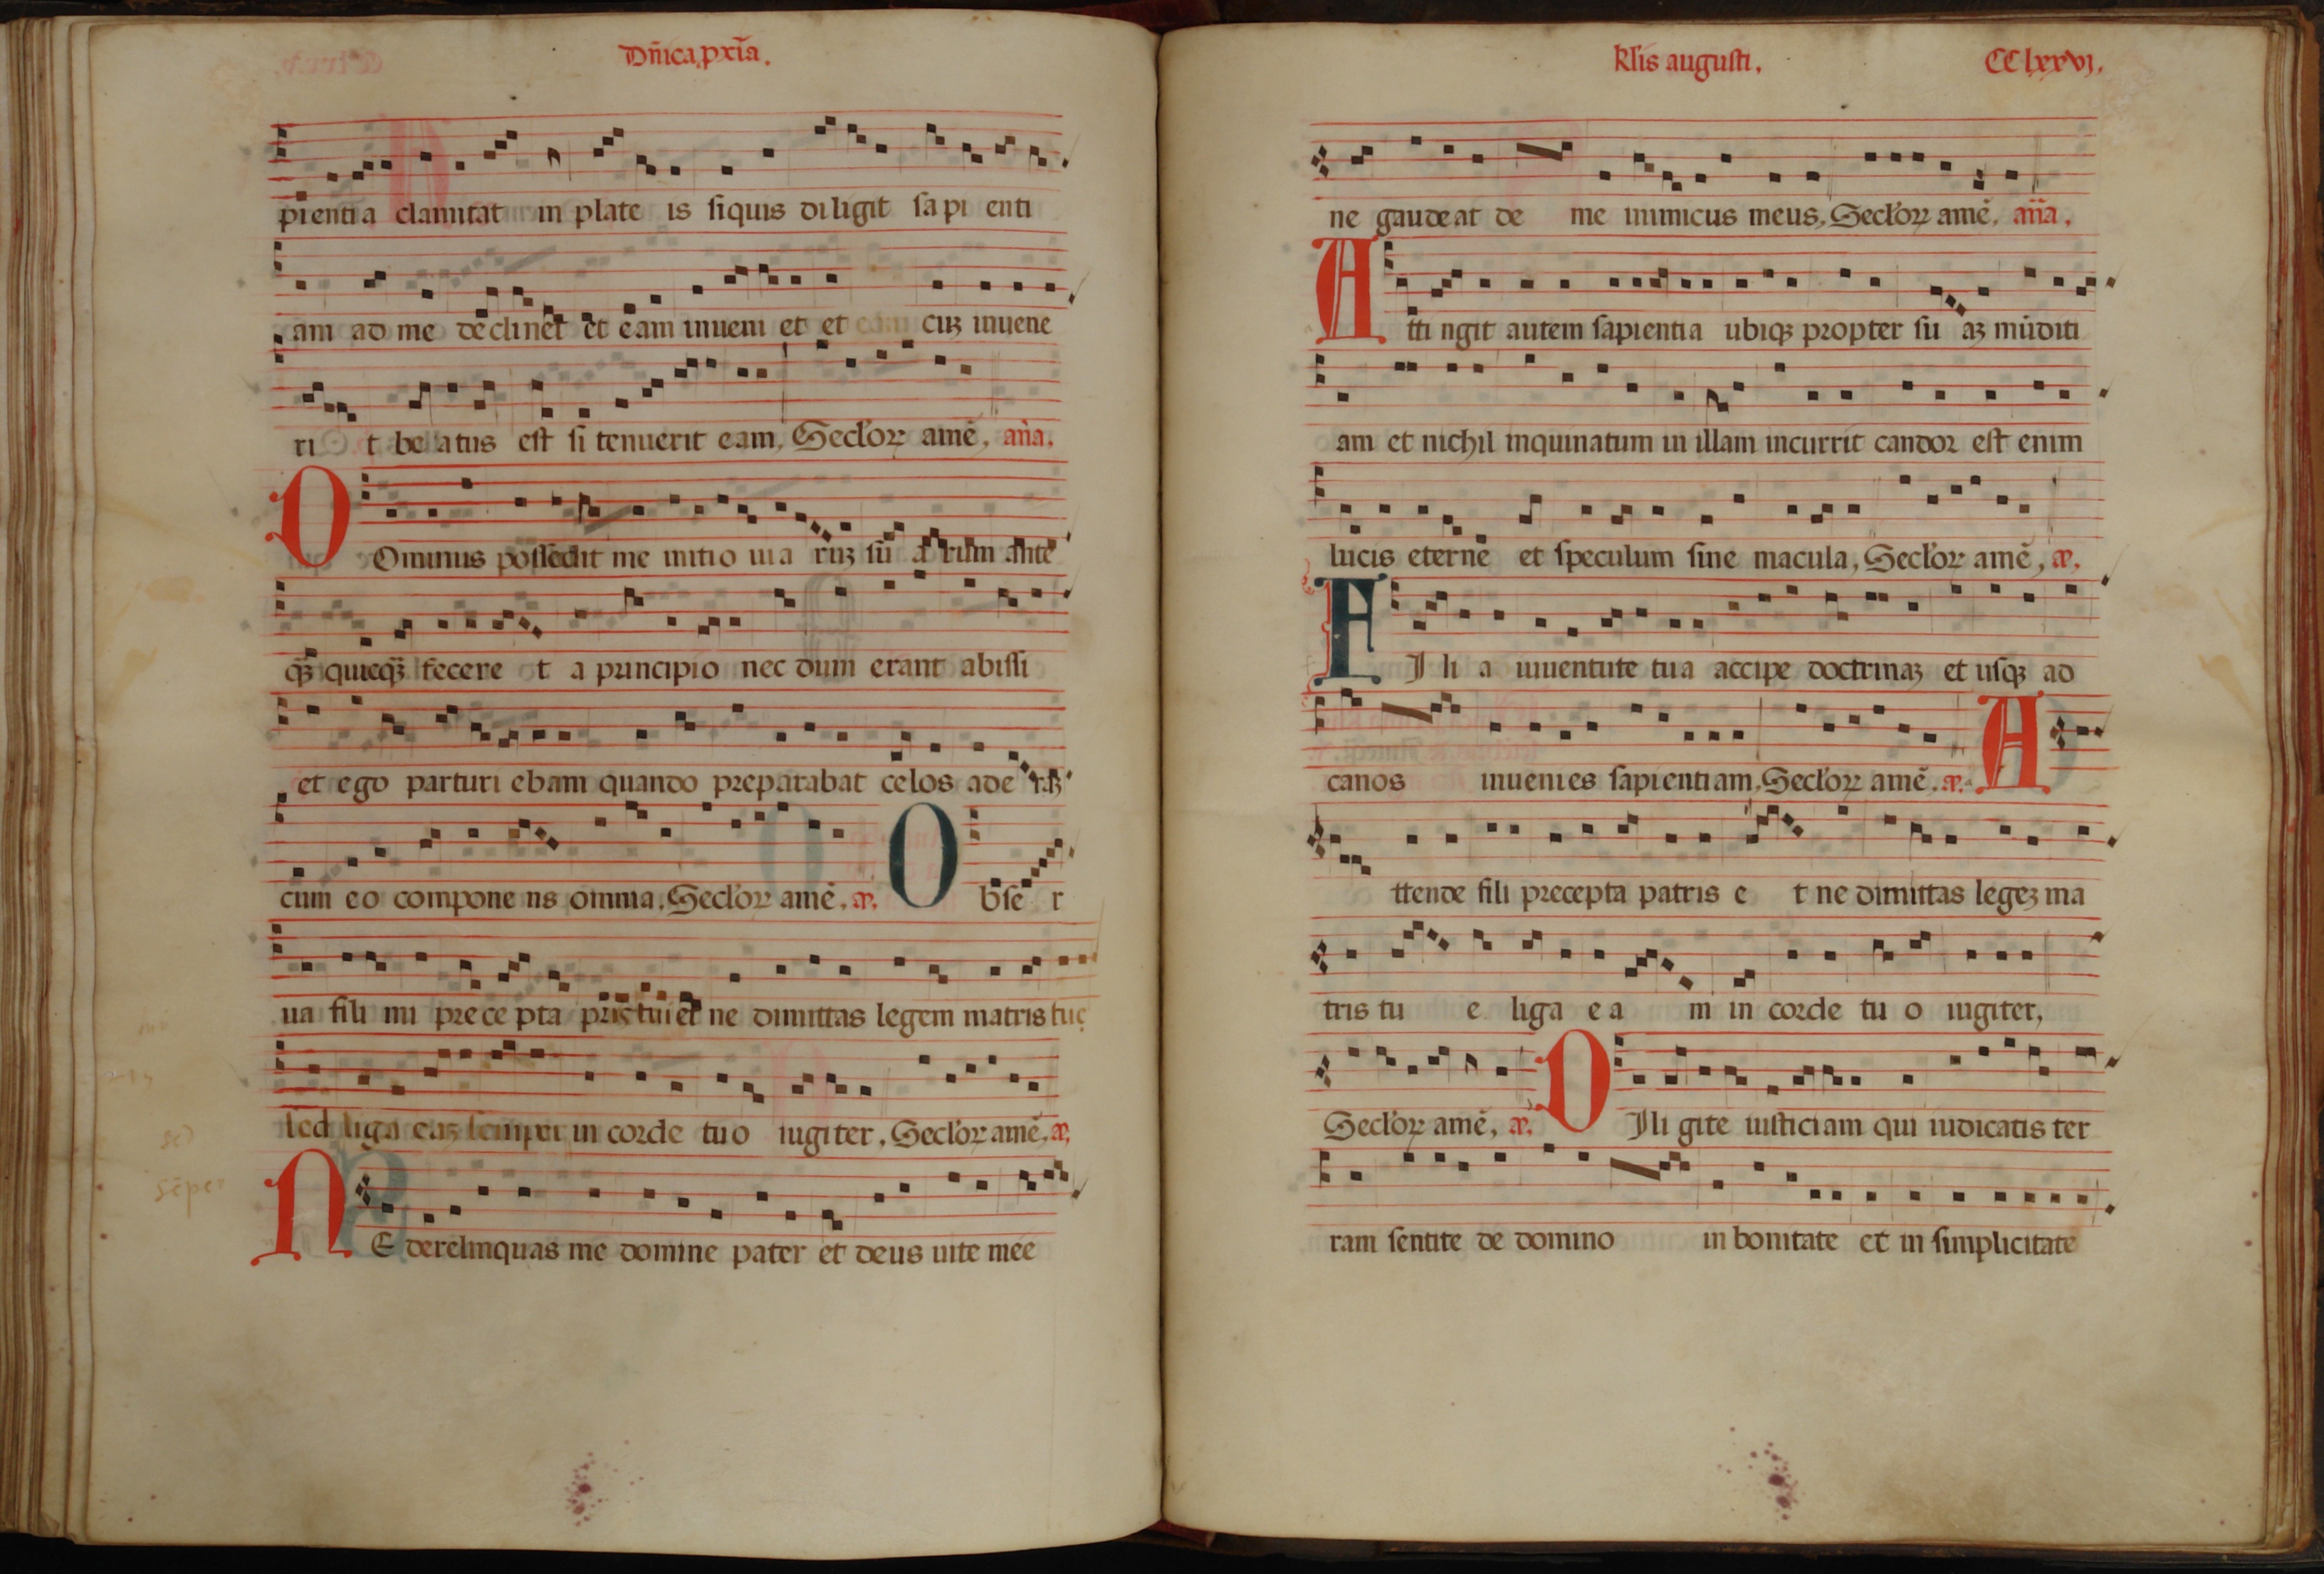 Dn̄ica pxīa.
pientia clamitat in plate is siquis diligit sapi enti
am ad me declinet et eam inueni et et cuꝫ inuene
ri t beatus est si tenuerit eam, Secl'oꝝ amē, an̄a.
D Ominus possedit me initio uia ruꝫ su arum ante
qꝫ quicqꝫ fecere t a principio nec dum erant abissi
et ego parturi ebam quando preparabat celos ade raꝫ
cum eo compone ns omnia, Secl'oꝝ amē, æ. O bse r
ua fili mi prece pta pr̄is tui et ne dimittas legem matris tuę
sed liga eaꝫ semper in corde tuo iugiter, Secl'oꝝ amē, æ,
sed
sēper
N E derelinquas me domine pater et deus uite mee
kl̄is augusti,
CClxxvj,
ne gaudeat de me inimicus meus, Secl'oꝝ amē, an̄a,
A ttingit autem sapientia ubiqꝫ propter su aꝫ mūditi
am et nichil inquinatum in illam incurrit candor est enim
lucis eterne et speculum sine macula, Secl'oꝝ amē, æ,
F Ili a iuuentute tua accipe doctrinaꝫ et usqꝫ ad
canos inuenies sapientiam, Secl'oꝝ amē, æ. A
ttende fili precepta patris e t ne dimittas legeꝫ ma
tris tu e liga ea m in corde tuo iugiter,
Secl'oꝝ amē, æ. D Iligite iusticiam qui iudicatis ter
ram sentite de domino in bonitate et in simplicitate